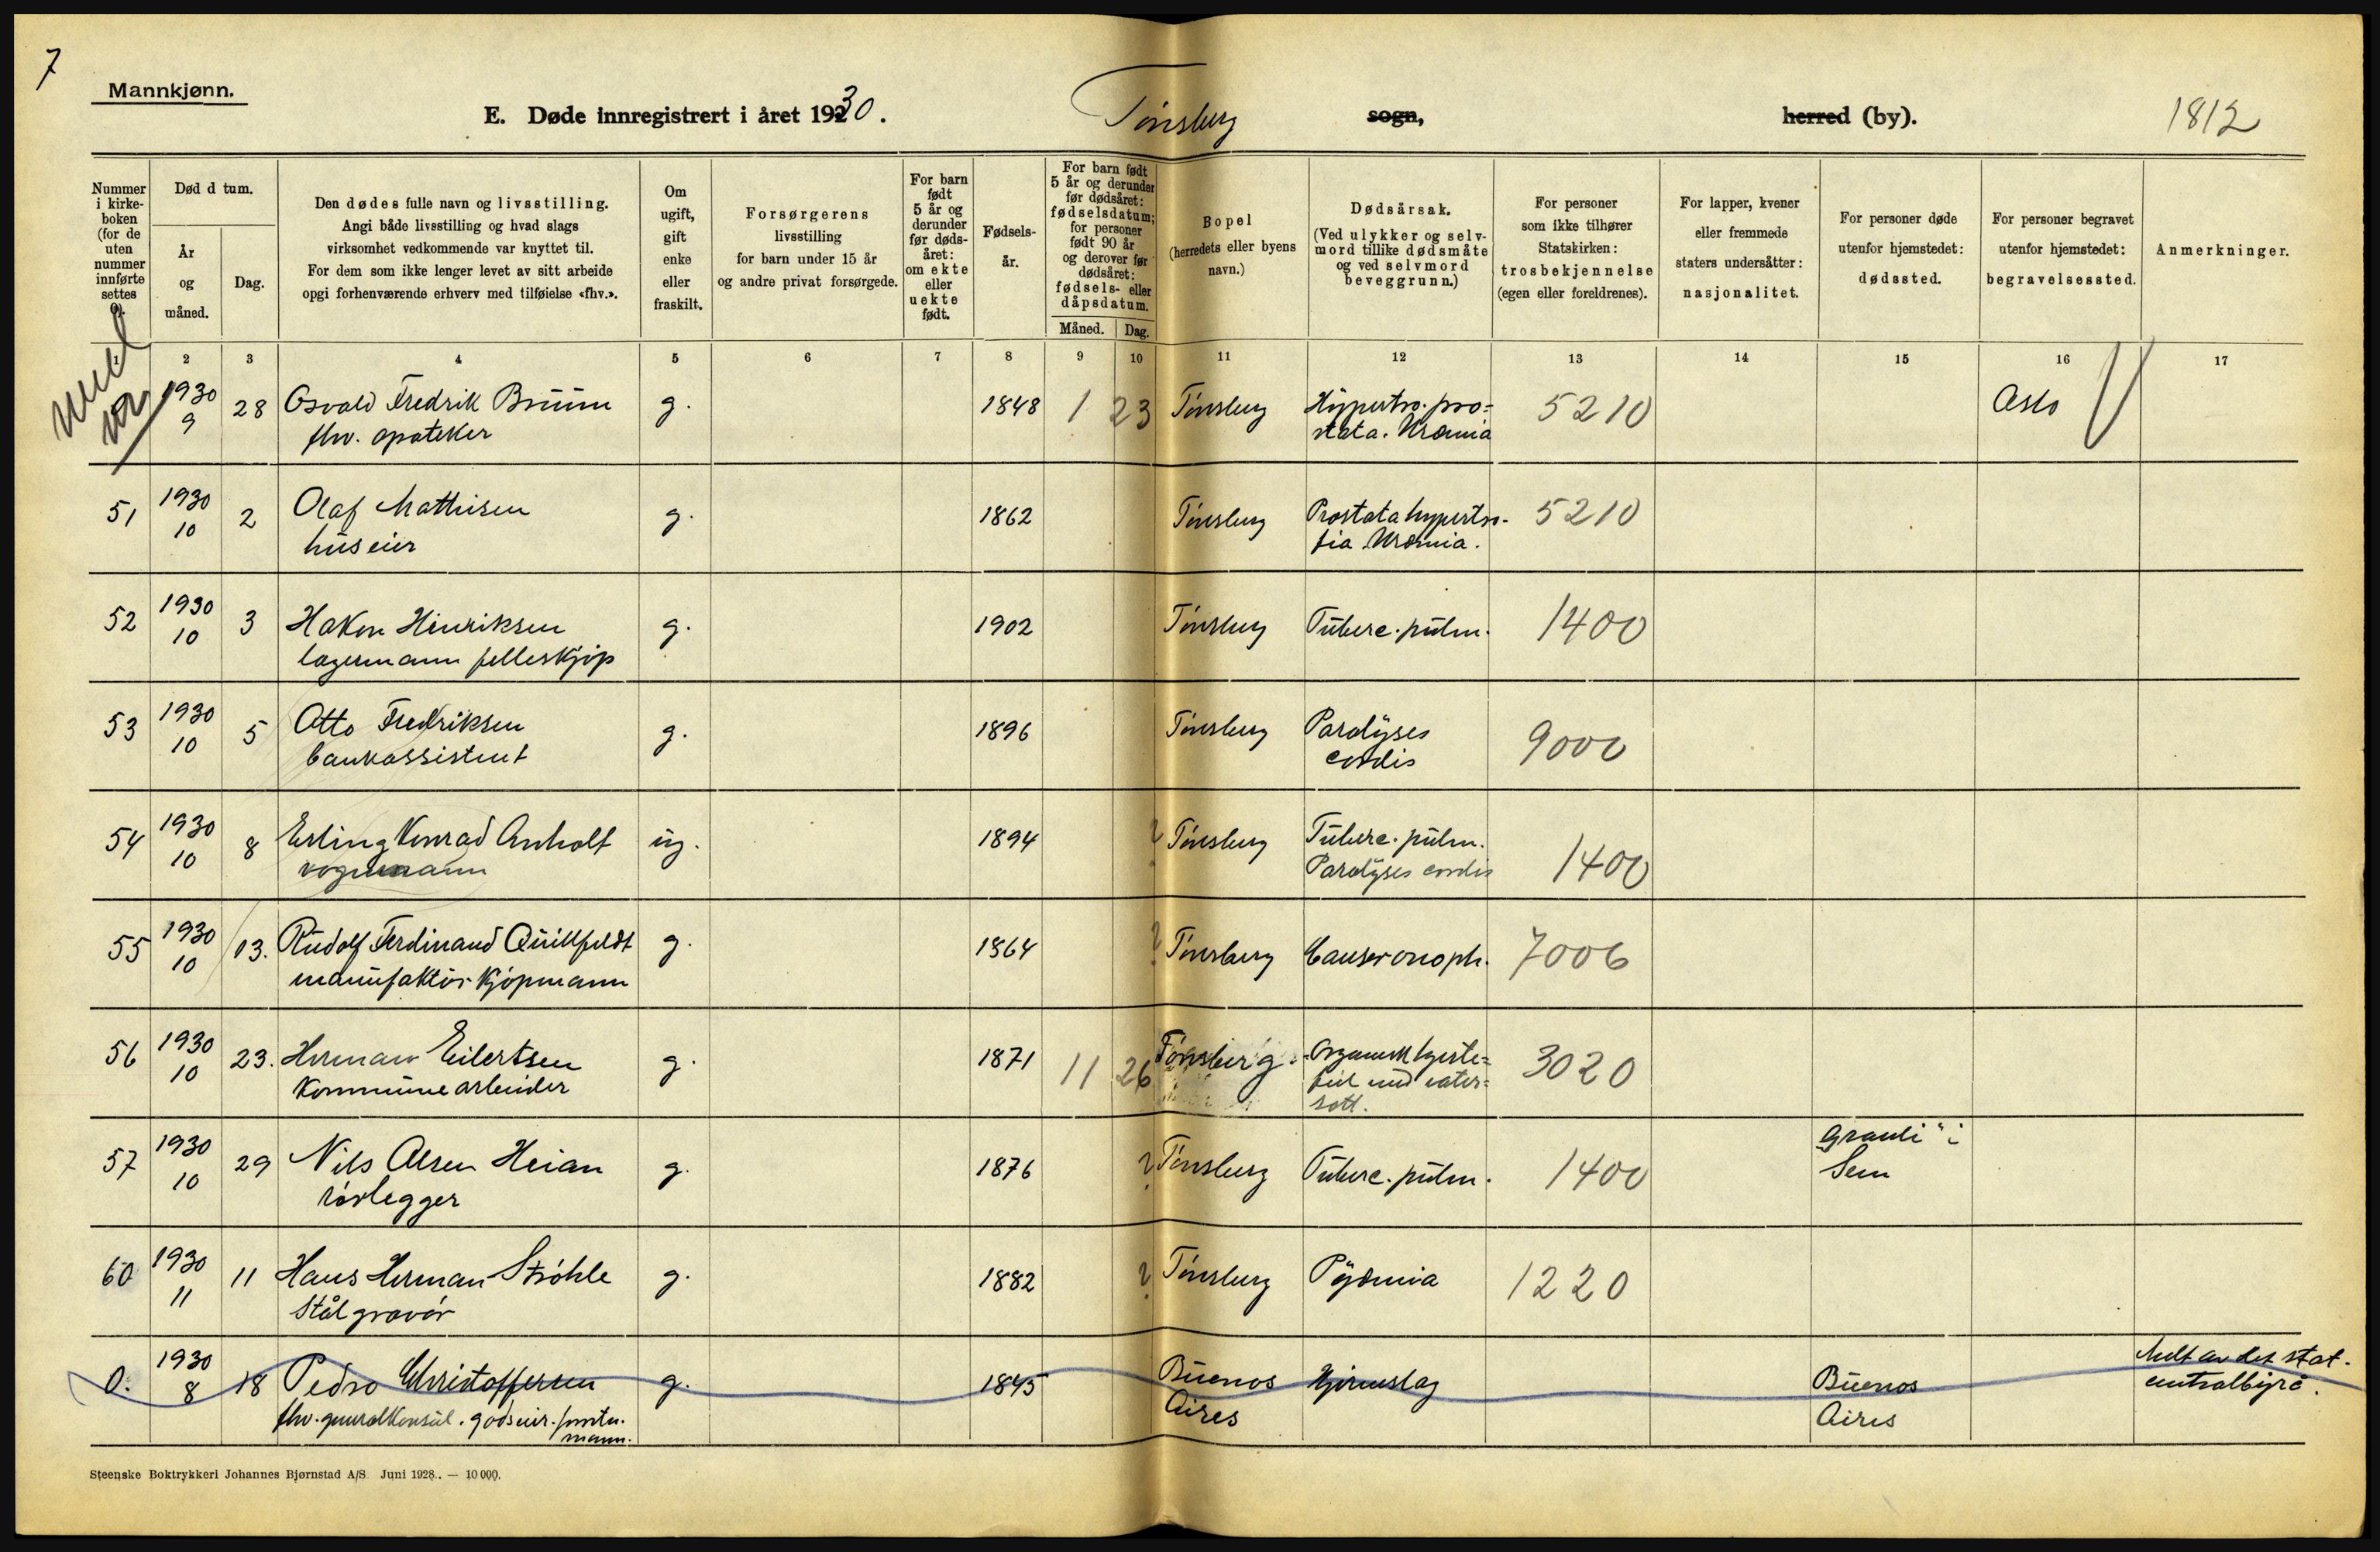 7
Mannkjønn.
E. Døde innregistrert i året 1930.
Tønsberg
sogn,
herred (by).
1812
Nummer i kirkeboken (for de uten nummer innførte settes 0).
Død d tum.
År og måned.
Dag.
Den dødes fulle navn og livsstilling.
Angi både livsstilling og hvad slags
virksomhet vedkommende var knyttet til.
For dem som ikke lenger levet av sitt arbeide
opgi forhenværende erhverv med tilføielse «fhv.».
Om ugift, gift enke eller fraskilt.
Forsørgerens
livsstilling
for barn under 15 år
og andre privat forsørgede.
For barn født 5 år og derunder før dødsåret: om ekte eller uekte født.
Fødselsår.
For barn født 5 år og derunder før dødsåret: fødselsdatum; for personer født 90 år og derover før dødsåret: fødsels- eller dåpsdatum.
Måned. Dag.
Bopel
(herredets eller byens
navn.)
Dødsårsak.
(Ved ulykker og selvmord tillike dødsmåte og ved selvmord beveggrunn.)
For personer
som ikke tilhører
Statskirken:
trosbekjennelse
(egen eller foreldrenes).
For lapper, kvener
eller fremmede
staters undersåtter:
nasjonalitet.
For personer døde
utenfor hjemstedet:
dødssted.
For personer begravet
utenfor hjemstedet:
begravelsessted.
Anmerkninger.
1 2 3 4 5 6 7 8 9 10 11 12 13 14 15 16 17
1930 9 28 Osvald Fredrik Bruun g. 1848 1 23 Tønsberg Hypertro. pro= 5210 Oslo
fhv. apoteker stata. Uræmia
51 1930 10 2 Olaf Mathisen g. 1862 Tønsberg Prostata hypertro- 5210
huseier fia. Uræmia.
52 1930 10 3 Hakon Henriksen g. 1902 Tønsberg Tuberc. pulm. 1400
lagermann felleskjøp
53 1930 10 5 Otto Fredriksen g. 1896 Tønsberg Paralyses 9000
bankassistent cordis
54 1930 10 8 Erling Konrad Anholt ug. 1894 ? Tønsberg Tuberc. pulm.
vognmann Paralyses cordis 1400
55 1930 10 13. Rudolf Ferdinand Quillfeldt g. 1864 ? Tønsberg Cancer 7006
manufaktur kjøpmann
56 1930 10 23. Herman Eilertsen g. 1871 11 26 Tønsberg. Organisk hjerte= 3020
Kommunearbeider feil med vater=
sott.
57 1930 10 29 Nils Olsen Heian g. 1876 ? Tønsberg Tuberc. pulm. 1400 Grauli i
rørlegger Sem
60 1930 11 11 Hans Herman Strøhle g. 1882 ? Tønsberg Pyæmia 1220
Stålgravør
0. 1930 8 18 Pedro Christoffersen g. 1845 Buenos Hjerneslag Buenos Melt av det stat.
fhv. generalkonsul. godseier. forretn. Aires Aires centralbyrå.
mann.
Steenske Boktrykkeri Johannes Bjørnstad A/S Juni 1928. — 10 000.